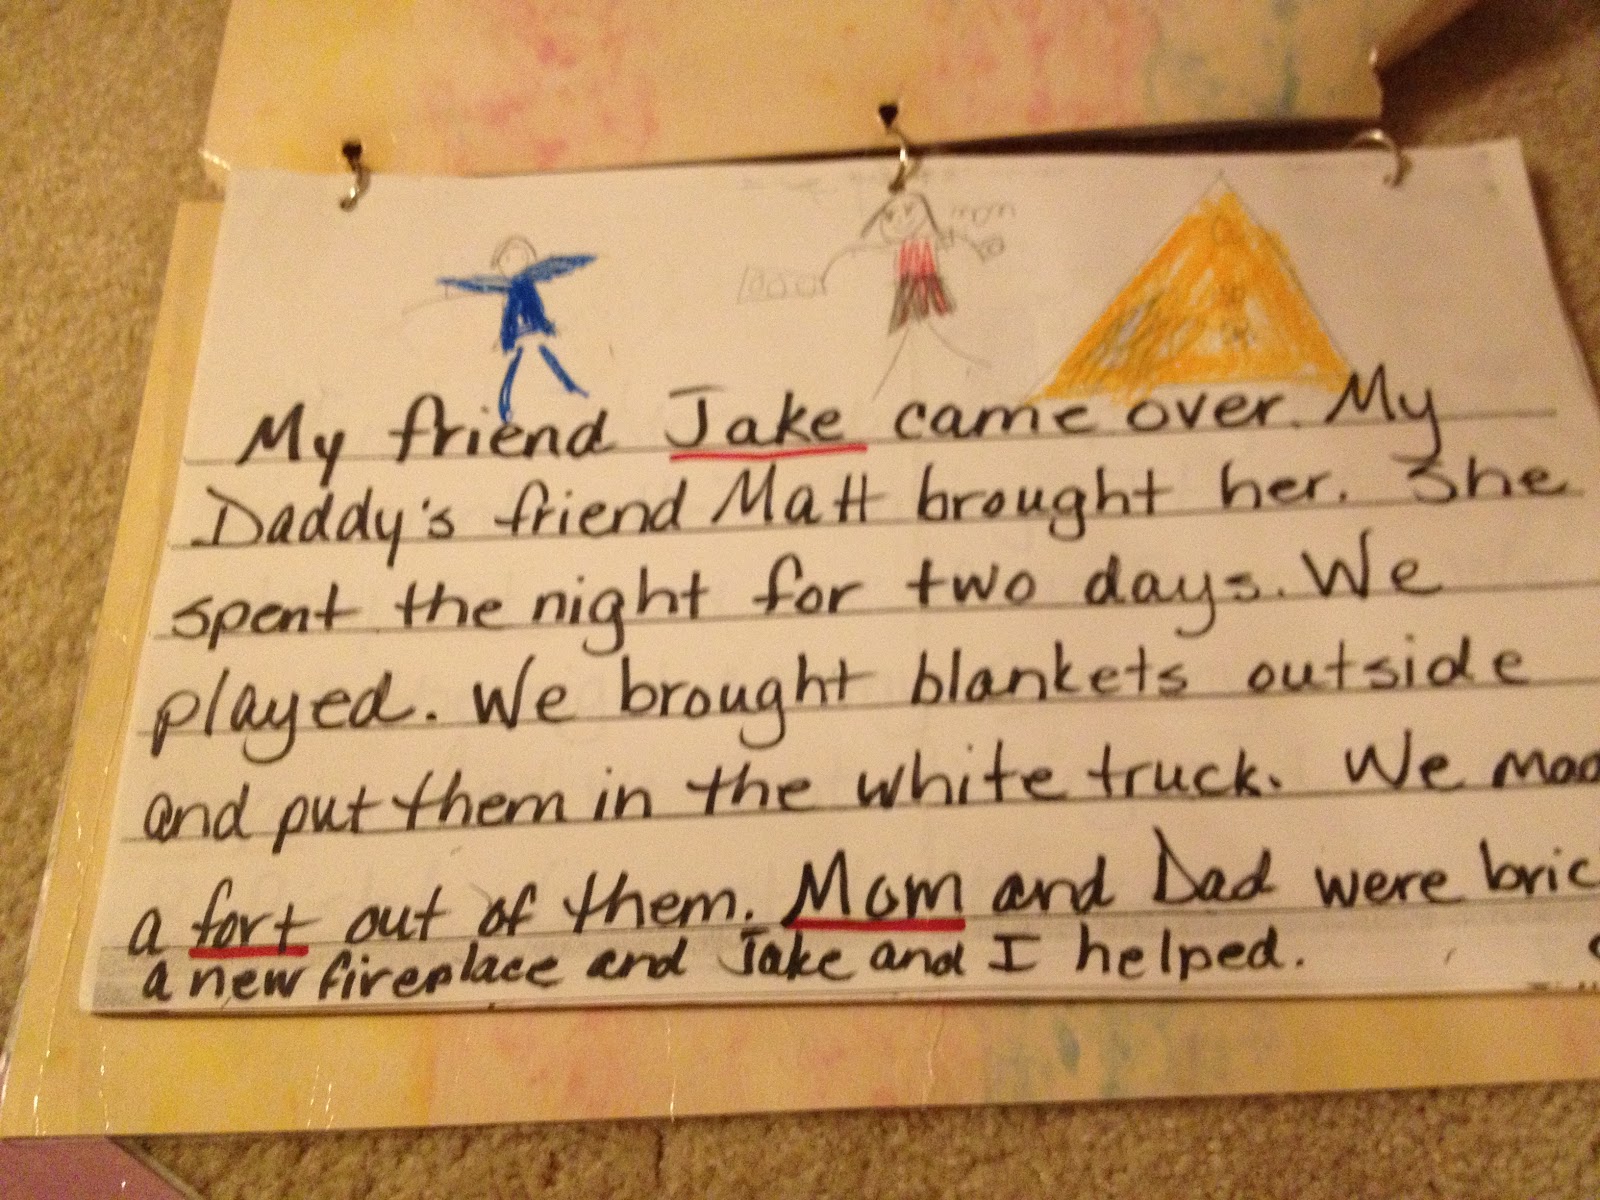 mom
My friend Jake came over. My
Daddy's friend Matt brought her. She
spent the night for two days. We
played. We brought blankets outside
and put them in the white truck. We
a fort out of them. Mom and Dad were
a new fireplace and Jake and I helped.